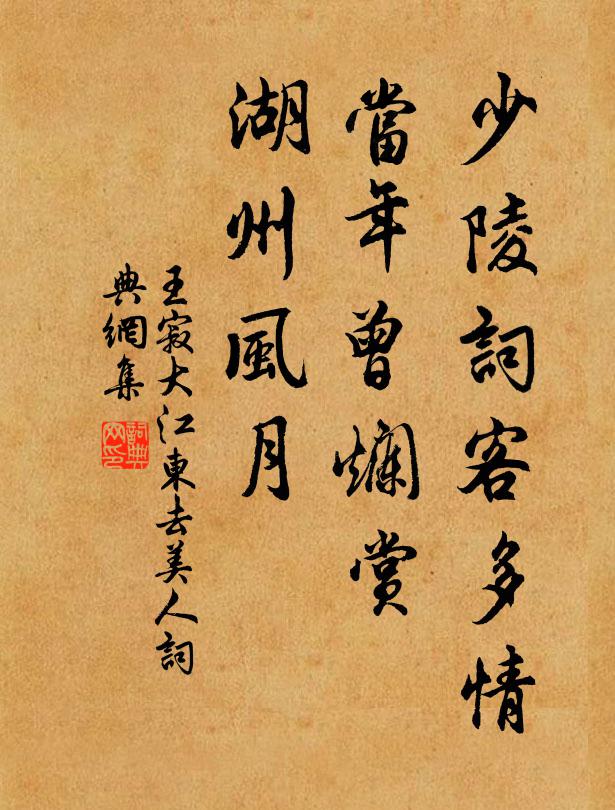 少陵詞客多情
當年曾爛賞
湖州風月
王寂大江東去美人詞
典網集
詞典網印